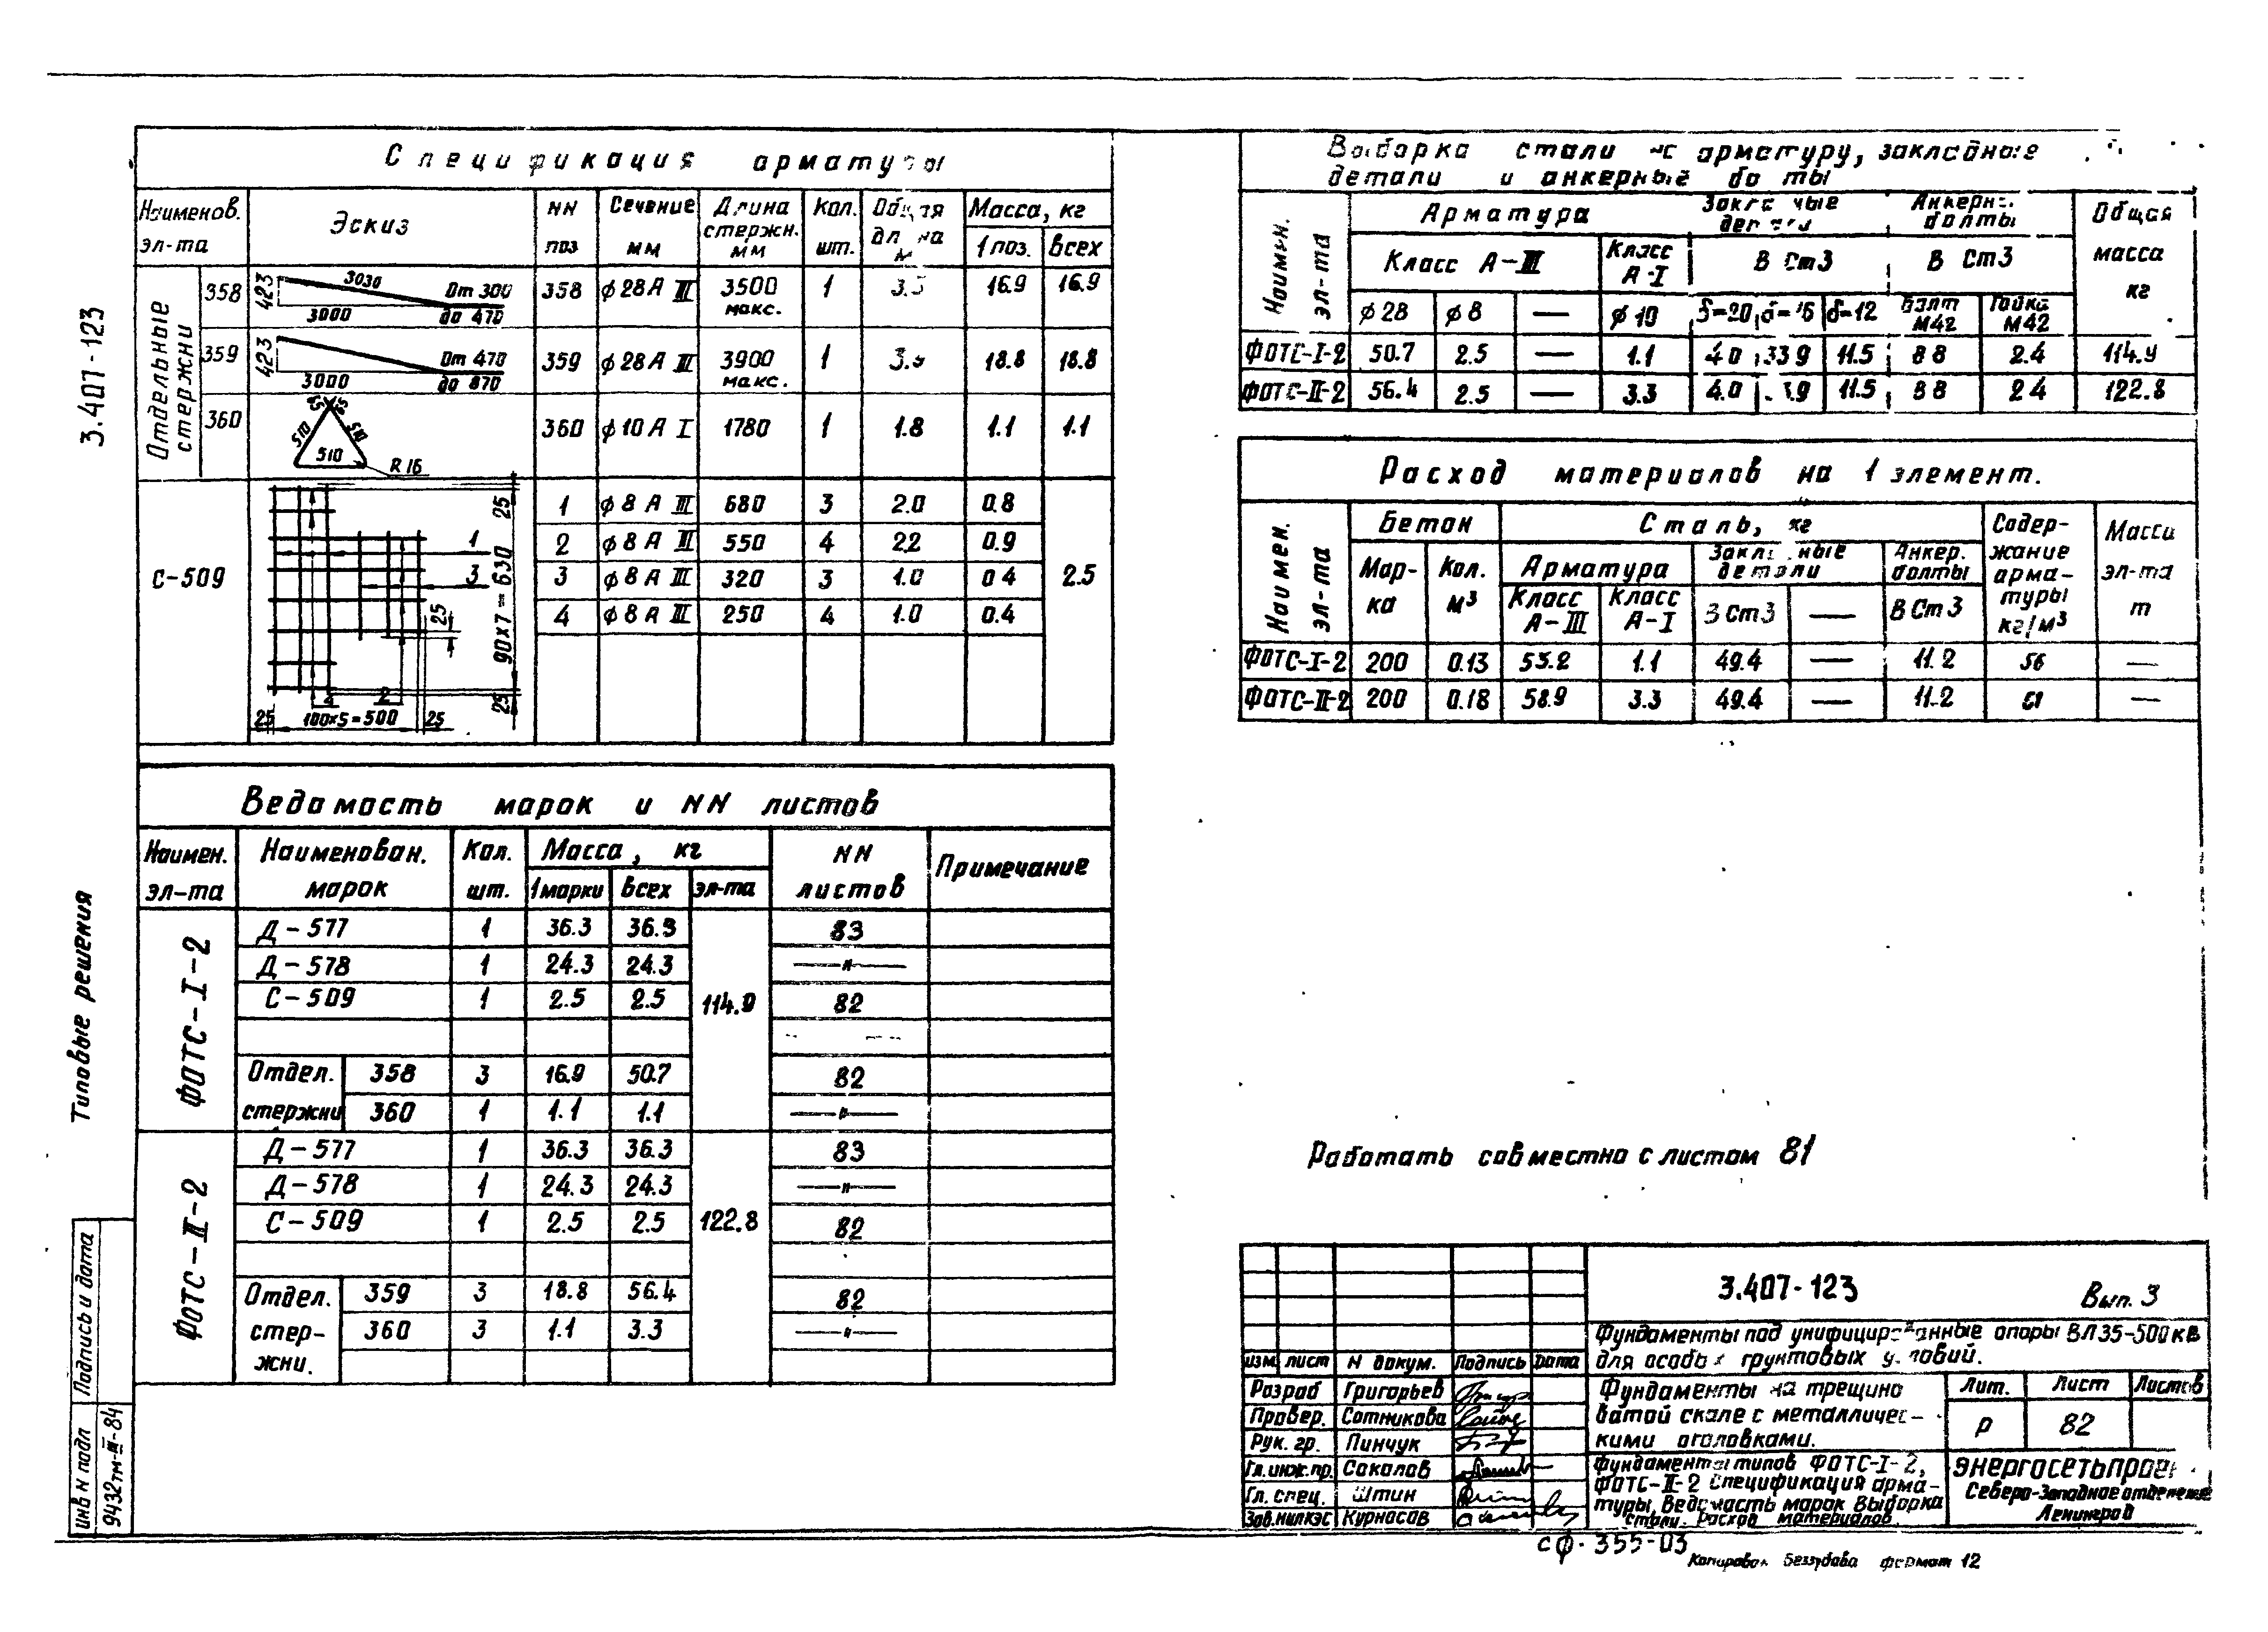 3.407-123
Типовые решения
Подпись и дата
инв N подл
9432тм-III-84
Спецификация арматуры
Наименов. эл-та | Эскиз | NN поз | Сечение мм | Длина стержн. мм | Кол. шт. | Общая длина м | Масса, кг
1 поз. | всех
Отдельные стержни
358 | 423 3030 3000 От 300 до 470 | 358 | ϕ28А III | 3500 макс. | 1 | 16.9 | 16.9
359 | 423 3000 От 470 до 870 | 359 | ϕ28А III | 3900 макс. | 1 | 18.8 | 18.8
360 | 65 65 510 510 510 R 16 | 360 | ϕ10А I | 1780 | 1 | 1.8 | 1.1 | 1.1
С-509
1 | ϕ8А III | 680 | 3 | 2.0 | 0.8
2 | ϕ8А III | 550 | 4 | 2.2 | 0.9
3 | ϕ8А III | 320 | 3 | 1.0 | 0.4 | 2.5
4 | ϕ8А III | 250 | 4 | 1.0 | 0.4
25 90х7=630 25
1 3 25
4 2
25 100х5=500 25
Ведомость марок и NN листов
Наимен. эл-та | Наименован. марок | Кол. шт. | Масса, кг | NN листов | Примечание
1 марки | всех | эл-та
ФОТС-I-2
Д-577 | 1 | 36.3 | 36.3 | 83
Д-578 | 1 | 24.3 | 24.3 | —"—
С-509 | 1 | 2.5 | 2.5 | 114.9 | 82
Отдел. | 358 | 3 | 16.9 | 50.7 | 82
стержни | 360 | 1 | 1.1 | 1.1 | —"—
ФОТС-II-2
Д-577 | 1 | 36.3 | 36.3 | 83
Д-578 | 1 | 24.3 | 24.3 | —"—
С-509 | 1 | 2.5 | 2.5 | 122.8 | 82
Отдел. | 359 | 3 | 18.8 | 56.4 | 82
стер- | 360 | 3 | 1.1 | 3.3 | —"—
жни.
Выборка стали на арматуру, закладные
детали и анкерные болты
Наимен. эл-та | Арматура | Закладные детали | Анкерн. болты | Общая масса кг
Класс А-III | Класс А-I | В Ст3 | В Ст3
ϕ28 | ϕ8 | — | ϕ10 | δ=20 | δ=16 | δ=12 | Болт М42 | Гайка М42
ФОТС-I-2 | 50.7 | 2.5 | — | 1.1 | 4.0 | 33.9 | 11.5 | 8.8 | 2.4 | 114.9
ФОТС-II-2 | 56.4 | 2.5 | — | 3.3 | 4.0 | 11.5 | 8.8 | 2.4 | 122.8
Расход материалов на 1 элемент.
Наимен. эл-та | Бетон | Сталь, кг | Содер-жание арма-туры кг/м³ | Масса эл-та т
Мар-ка | Кол. м³ | Арматура | Закладные детали | Анкер. болты
Класс А-III | Класс А-I | В Ст3 | — | В Ст3
ФОТС-I-2 | 200 | 0.13 | 53.2 | 1.1 | 49.4 | — | 11.2 | 56 | —
ФОТС-II-2 | 200 | 0.18 | 58.9 | 3.3 | 49.4 | — | 11.2 | —
Работать совместно с листом 81
3.407-123 Вып. 3
Фундаменты под унифицированные опоры ВЛ 35-500 кВ
для особых грунтовых условий.
изм лист N докум. Подпись Дата
Разраб Григорьев
Провер. Сотникова
Рук. гр. Пинчук
Гл. инж. пр. Соколов
Гл. спец. Штин
Зав. НИЛКЭС Курносов
Фундаменты на трещино
ватой скале с металличес-
кими оголовками.
Лит. Лист Листов
Р 82
Фундаменты типов ФОТС-I-2,
ФОТС-II-2 Спецификация арма-
туры, Ведомость марок Выборка
стали. Расход материалов
ЭНЕРГОСЕТЬПРОЕКТ
Северо-Западное отделение
Ленинград
сф. 355-03
Копировал формат 12